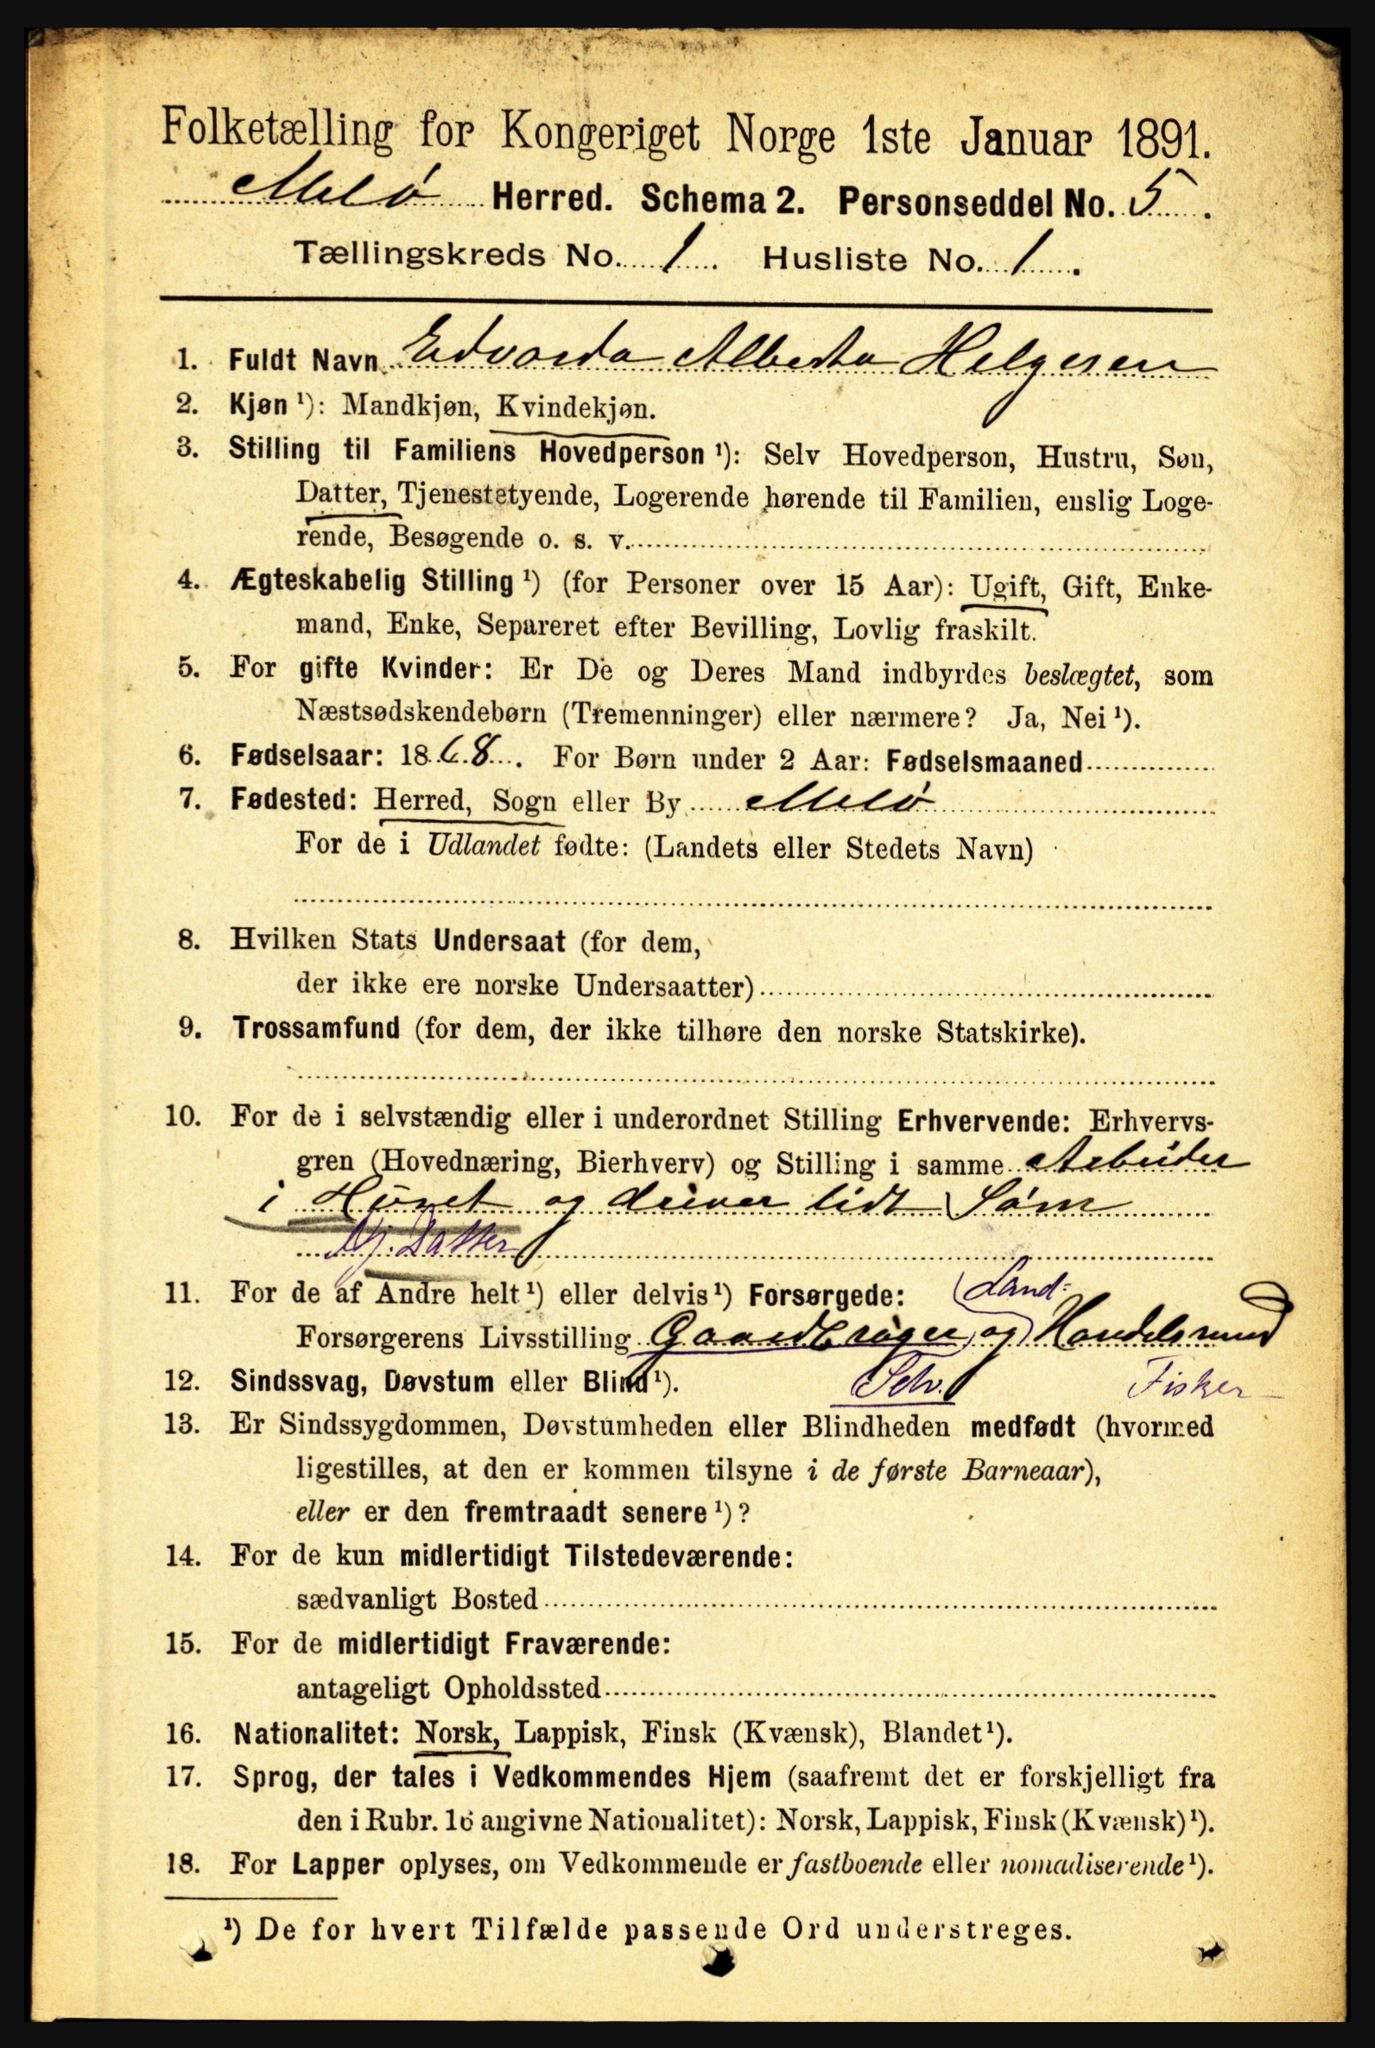 Folketælling for Kongeriget Norge 1ste Januar 1891.
Melø Herred. Schema 2. Personseddel No. 5.
Tællingskreds No. 1. Husliste No. 1.
1. Fuldt Navn Edvarda Alberta Helgesen
2. Kjøn ¹): Mandkjøn, Kvindekjøn.
3. Stilling til Familiens Hovedperson ¹): Selv Hovedperson, Hustru, Søn,
Datter, Tjenestetyende, Logerende hørende til Familien, enslig Loge-
rende, Besøgende o. s. v.
4. Ægteskabelig Stilling ¹) (for Personer over 15 Aar): Ugift, Gift, Enke-
mand, Enke, Separeret efter Bevilling, Lovlig fraskilt.
5. For gifte Kvinder: Er De og Deres Mand indbyrdes beslægtet, som
Næstsødskendebørn (Tremenninger) eller nærmere? Ja, Nei ¹).
6. Fødselsaar: 1868. For Børn under 2 Aar: Fødselsmaaned
7. Fødested: Herred, Sogn eller By Melø
For de i Udlandet fødte: (Landets eller Stedets Navn)
8. Hvilken Stats Undersaat (for dem,
der ikke ere norske Undersaatter)
9. Trossamfund (for dem, der ikke tilhøre den norske Statskirke).
10. For de i selvstændig eller i underordnet Stilling Erhvervende: Erhvervs-
gren (Hovednæring, Bierhverv) og Stilling i samme Arbeider
i Huset og driver lidt Søm
Datter
11. For de af Andre helt ¹) eller delvis ¹) Forsørgede: Land-
Forsørgerens Livsstilling Gaardbruger og Handelsmand
12. Sindssvag, Døvstum eller Blind ¹). Selv. Fisker
13. Er Sindssygdommen, Døvstumheden eller Blindheden medfødt (hvormed
ligestilles, at den er kommen tilsyne i de første Barneaar),
eller er den fremtraadt senere ¹)?
14. For de kun midlertidigt Tilstedeværende:
sædvanligt Bosted
15. For de midlertidigt Fraværende:
antageligt Opholdssted
16. Nationalitet: Norsk, Lappisk, Finsk (Kvænsk), Blandet ¹).
17. Sprog, der tales i Vedkommendes Hjem (saafremt det er forskjelligt fra
den i Rubr. 16 angivne Nationalitet): Norsk, Lappisk, Finsk (Kvænsk) ¹).
18. For Lapper oplyses, om Vedkommende er fastboende eller nomadiserende ¹).
¹) De for hvert Tilfælde passende Ord understreges.